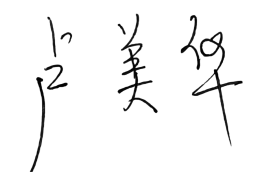 卢美华